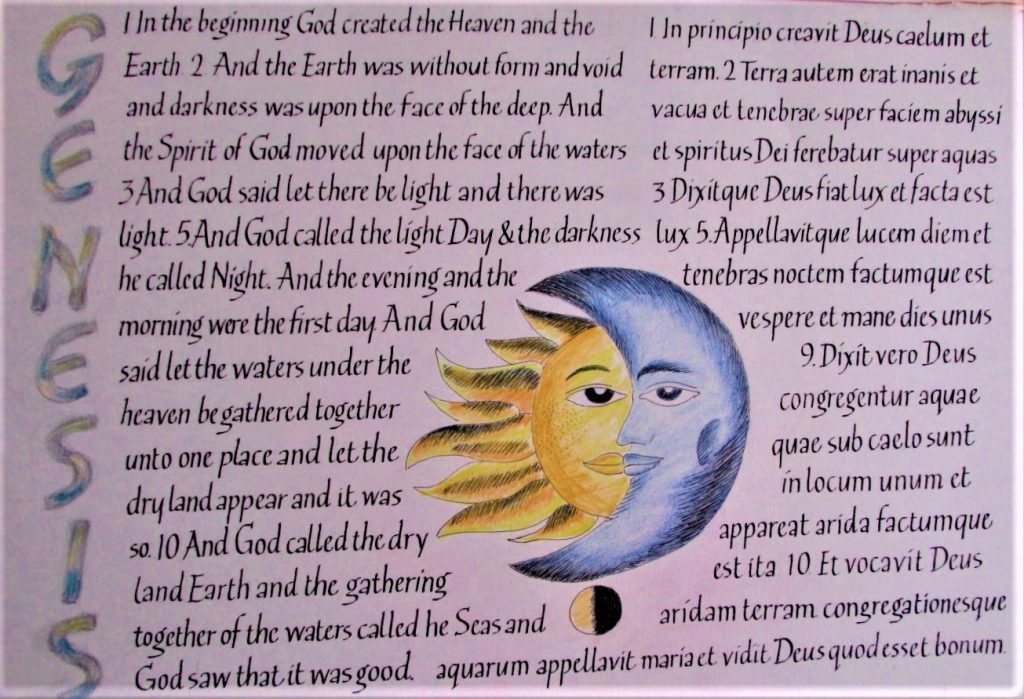 GENESIS
1 In the beginning God created the Heaven and the
Earth 2 And the Earth was without form and void
and darkness was upon the face of the deep. And
the Spirit of God moved upon the face of the waters
3 And God said let there be light and there was
light. 5. And God called the light Day & the darkness
he called Night. And the evening and the
morning were the first day. And God
said let the waters under the
heaven be gathered together
unto one place and let the
dry land appear and it was
so. 10 And God called the dry
land Earth and the gathering
together of the waters called he Seas and
God saw that it was good.
1 In principio creavit Deus caelum et
terram. 2 Terra autem erat inanis et
vacua et tenebrae super faciem abyssi
et spiritus Dei ferebatur super aquas
3 Dixitque Deus fiat lux et facta est
lux 5. Appellavitque lucem diem et
tenebras noctem factumque est
vespere et mane dies unus
9. Dixit vero Deus
congregentur aquae
quae sub caelo sunt
in locum unum et
appareat arida factumque
est ita 10 Et vocavit Deus
aridam terram congregationesque
aquarum appellavit maria et vidit Deus quod esset bonum.